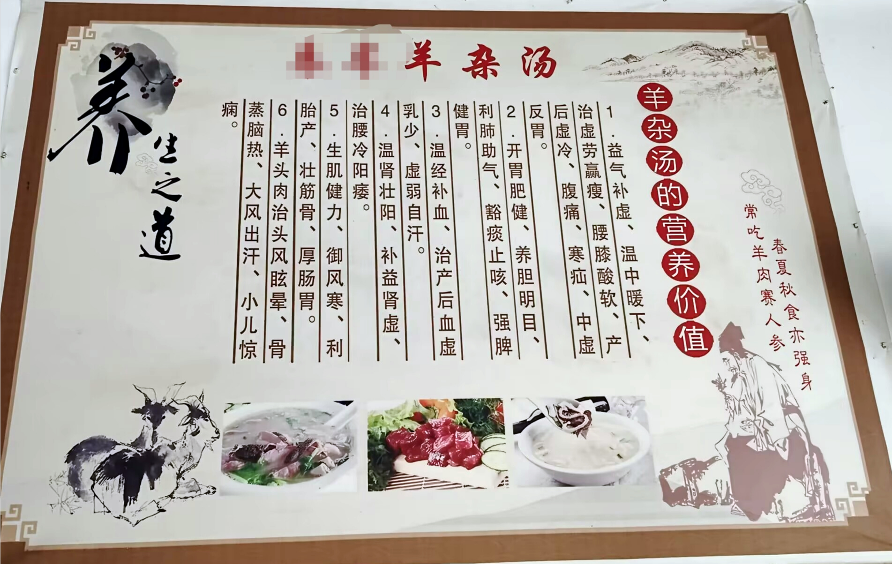 羊杂汤
养生之道
羊杂汤的营养价值
1.益气补虚、温中暖下、
治虚劳羸瘦、腰膝酸软、产
后虚冷、腹痛、寒疝、中虚
反胃。
2.开胃肥健、养胆明目、
利肺助气、豁痰止咳、强脾
健胃。
3.温经补血、治产后血虚
乳少、虚弱自汗。
4.温肾壮阳、补益肾虚、
治腰冷阳痿。
5.生肌健力、御风寒、利
胎产、壮筋骨、厚肠胃。
6.羊头肉治头风眩晕、骨
蒸脑热、大风出汗、小儿惊
痫。
春夏秋食亦强身
常吃羊肉赛人参